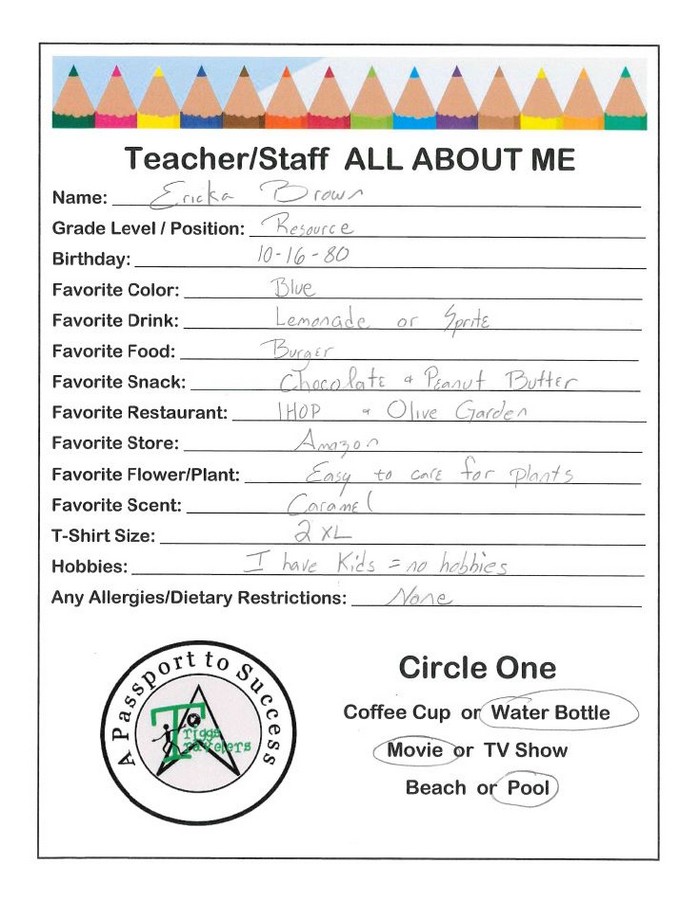 Teacher/Staff ALL ABOUT ME
Name: Ericka Brown
Grade Level / Position: Resource
Birthday: 10-16-80
Favorite Color: Blue
Favorite Drink: Lemonade or Sprite
Favorite Food: Burger
Favorite Snack: Chocolate & Peanut Butter
Favorite Restaurant: IHOP & Olive Garden
Favorite Store: Amazon
Favorite Flower/Plant: Easy to care for plants
Favorite Scent: Caramel
T-Shirt Size: 2 XL
Hobbies: I have Kids = no hobbies
Any Allergies/Dietary Restrictions: None
A Passport to Success
Triggs
Travelers
Circle One
Coffee Cup or Water Bottle
Movie or TV Show
Beach or Pool